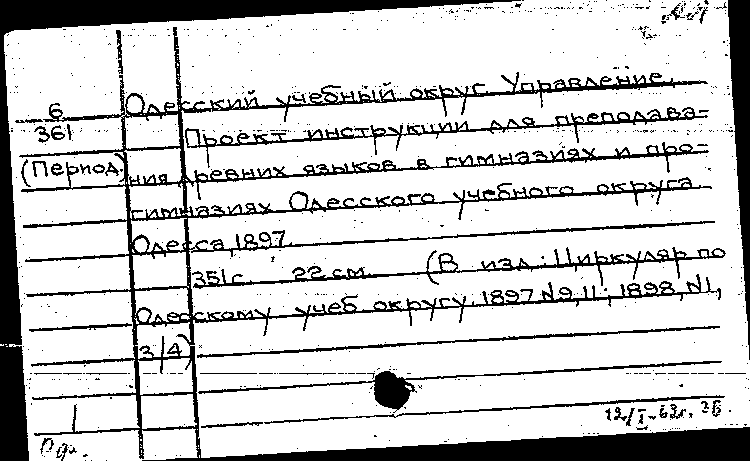 АЛ
6 Одесский учебный округ. Управление.
361 Проект инструкции для преподава-
(Период.) ния древних языков в гимназиях и про-
гимназиях Одесского учебного округа.
Одесса, 1897.
351 с. 22 см. (В изд.: Циркуляр по
Одесскому учеб. округу. 1897 N 9, 11; 1898, N 1,
3/4)
1
12/I-63г.